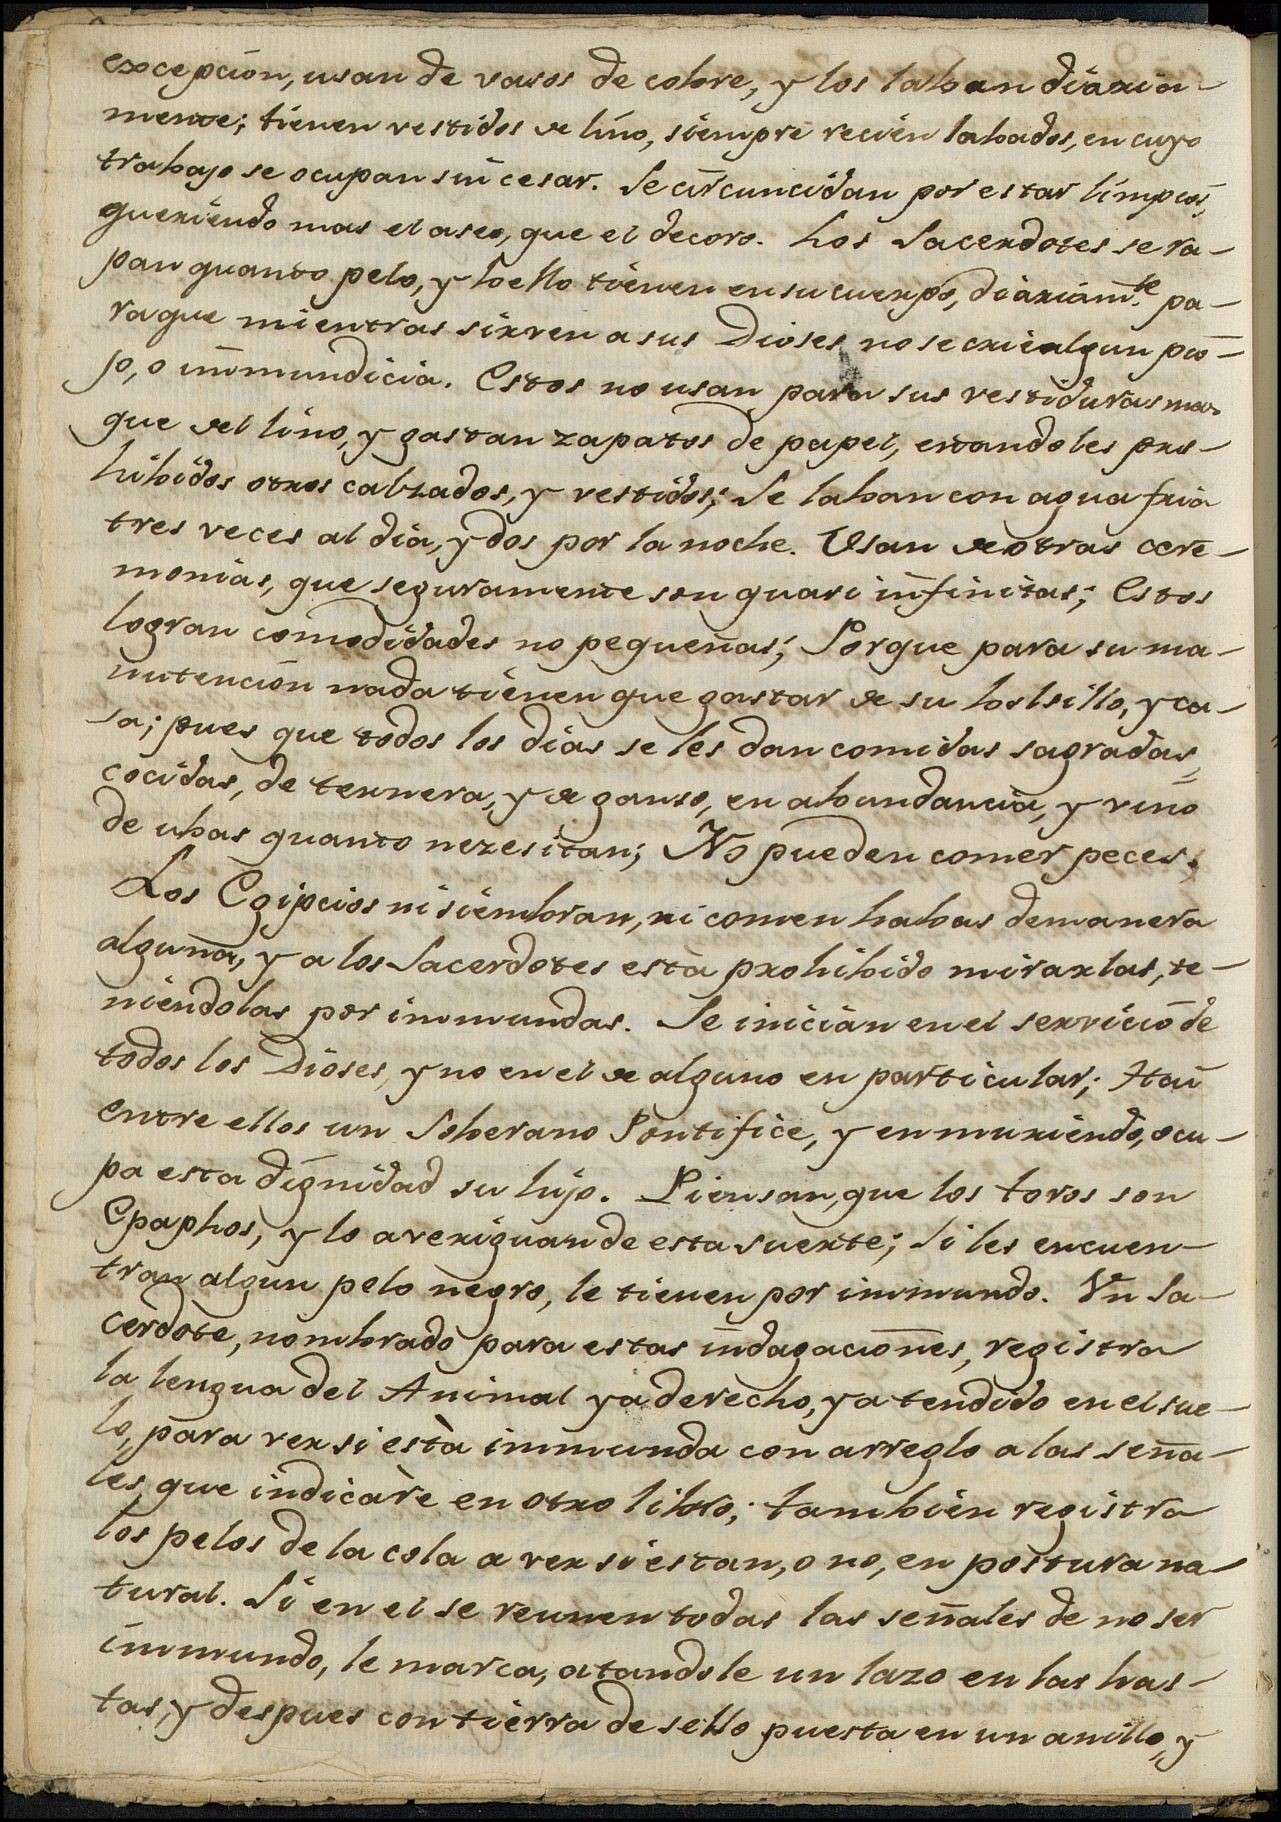 excepcion, usan de vasos de cobre, y los laban diaria-
mente; tienen vestidos de lino, siempre recien labados, en cuyo
trabajo se ocupan sin cesar. Se circuncidan por estar limpios,
queriendo mas el aseo, que el decoro. Los Sacerdotes se ra-
pan quanto pelo, y bello tienen en su cuerpo, diariam.te pa-
ra que mientras sirven a sus Dioses no se crie algun pio-
jo, o inmundicia. Estos no usan para sus vestiduras mas
que del lino, y gastan zapatos de papel, estandoles pro-
hibidos otros calzados, y vestidos; Se laban con agua fria
tres veces al dia, y dos por la noche. Usan de otras cere-
monias, que seguramente son quasi infinitas; Estos
logran comodidades no pequeñas; Porque para su ma-
nutencion nada tienen que gastar de su bolsillo, y ca-
sa; pues que todos los dias se les dan comidas sagradas,
cocidas, de ternera, y de ganso, en abundancia, y vino
de ubas quanto nezesitan; No pueden comer peces.
Los Egipcios ni siembran, ni comen habas de manera
alguna, y a los Sacerdotes està prohibido mirarlas, te-
niendolas por inmundas. Se inician en el servicio de
todos los Dioses, y no en el de alguno en particular; Hai
entre ellos un Soberano Pontifice, y en muriendo, ocu-
pa esta dignidad su hijo. Piensan, que los toros son
Epaphos, y lo averiguan de esta suerte; Si les encuen-
tran algun pelo negro, le tienen por inmundo. Un Sa-
cerdote, nombrado para estas indagaciones, registra
la lengua del Animal ya derecho, ya tendido en el sue-
lo, para ver si està inmunda con arreglo a las seña-
les que indicàre en otro libro; tambien registra
los pelos de la cola a ver si estan, o no, en postura na-
tural. Si en el se reunen todas las señales de no ser
inmundo, le marca, atandole un lazo en las has-
tas, y despues con tierra de sello puesta en un anillo, y